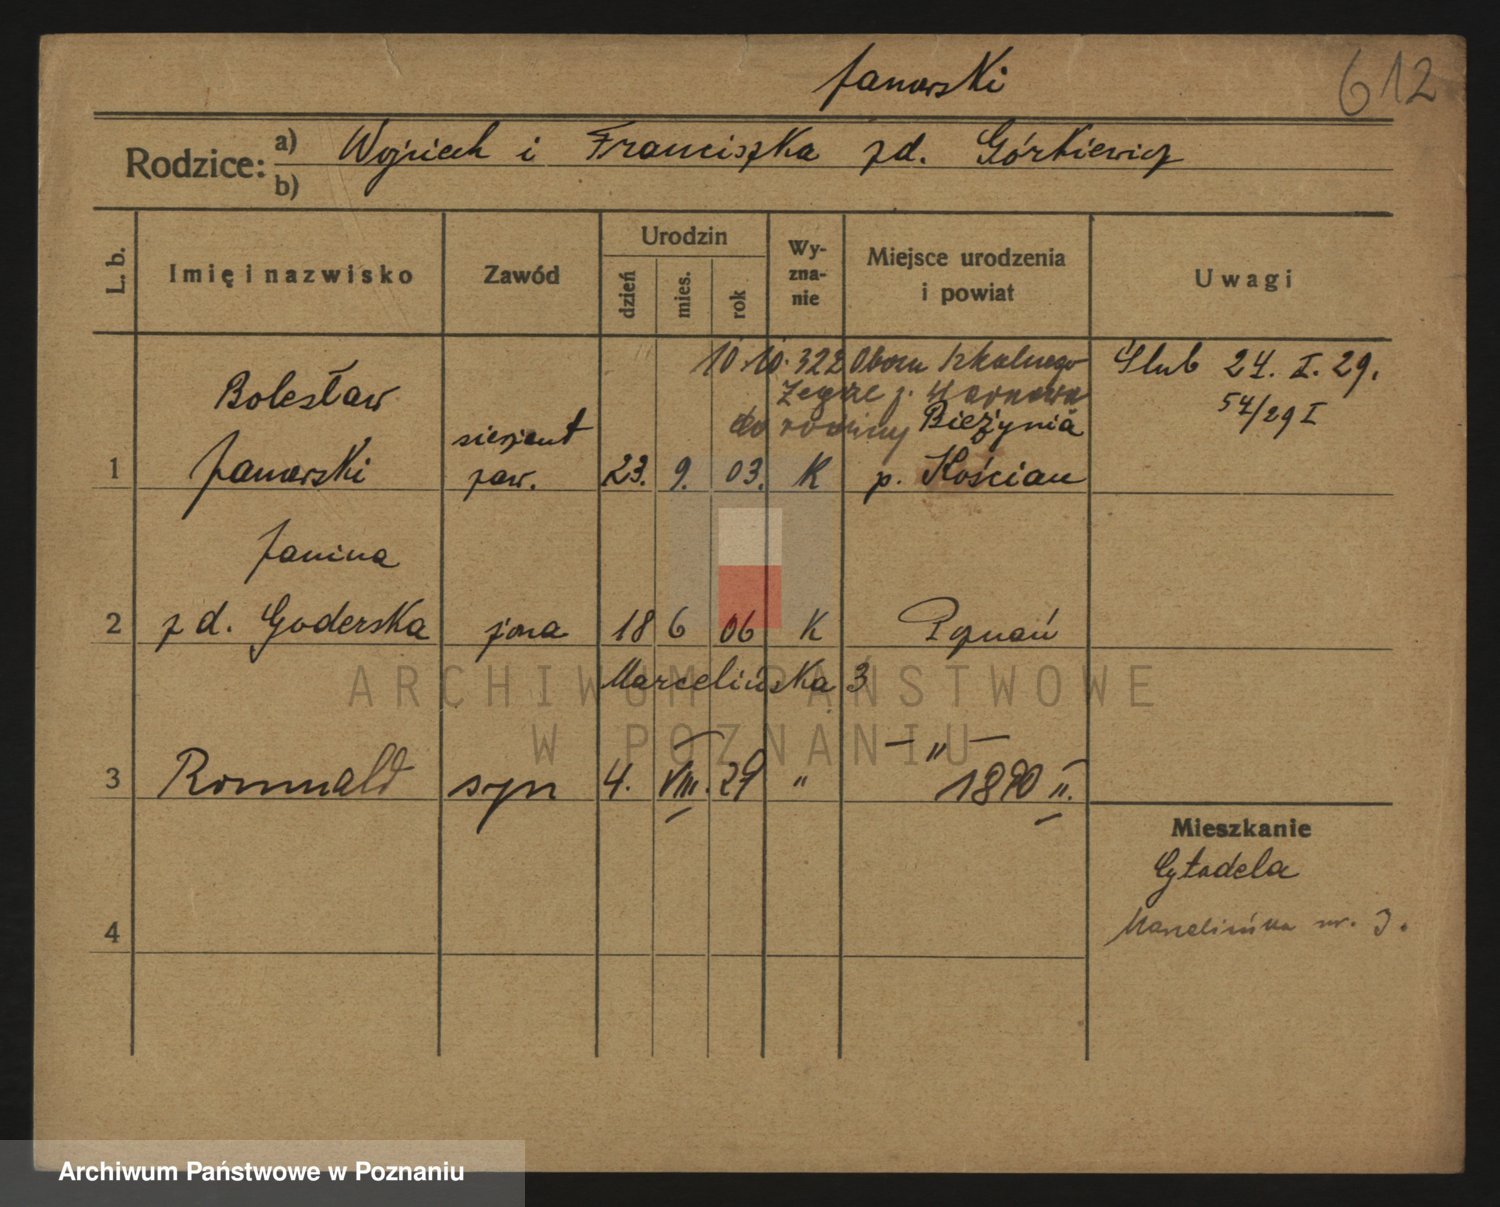 Janowski
612
Rodzice: a) Wojciech i Franciszka zd. Górkiewicz
b)
L. b.
Imię i nazwisko
Zawód
Urodzin
dzień
mies.
rok
Wy-
zna-
nie
Miejsce urodzenia
i powiat
Uwagi
10.10.322 Obozu Szkolnego
Zegrze
do rodziny
Bolesław
sierżant
Bieżynia
Ślub 24. I. 29.
54/29 I
1 Janowski zaw. 23. 9. 03. K p. Kościan
Janina
2 zd. Goderska żona 18 6 06 K Poznań
Marcelińska 3
3 Romuald syn 4. VIII. 29 " — " —
1890 II.
4
Mieszkanie
Cytadela
Marcelińska nr. 3.
ARCHIWUM PAŃSTWOWE
W POZNANIU
Archiwum Państwowe w Poznaniu